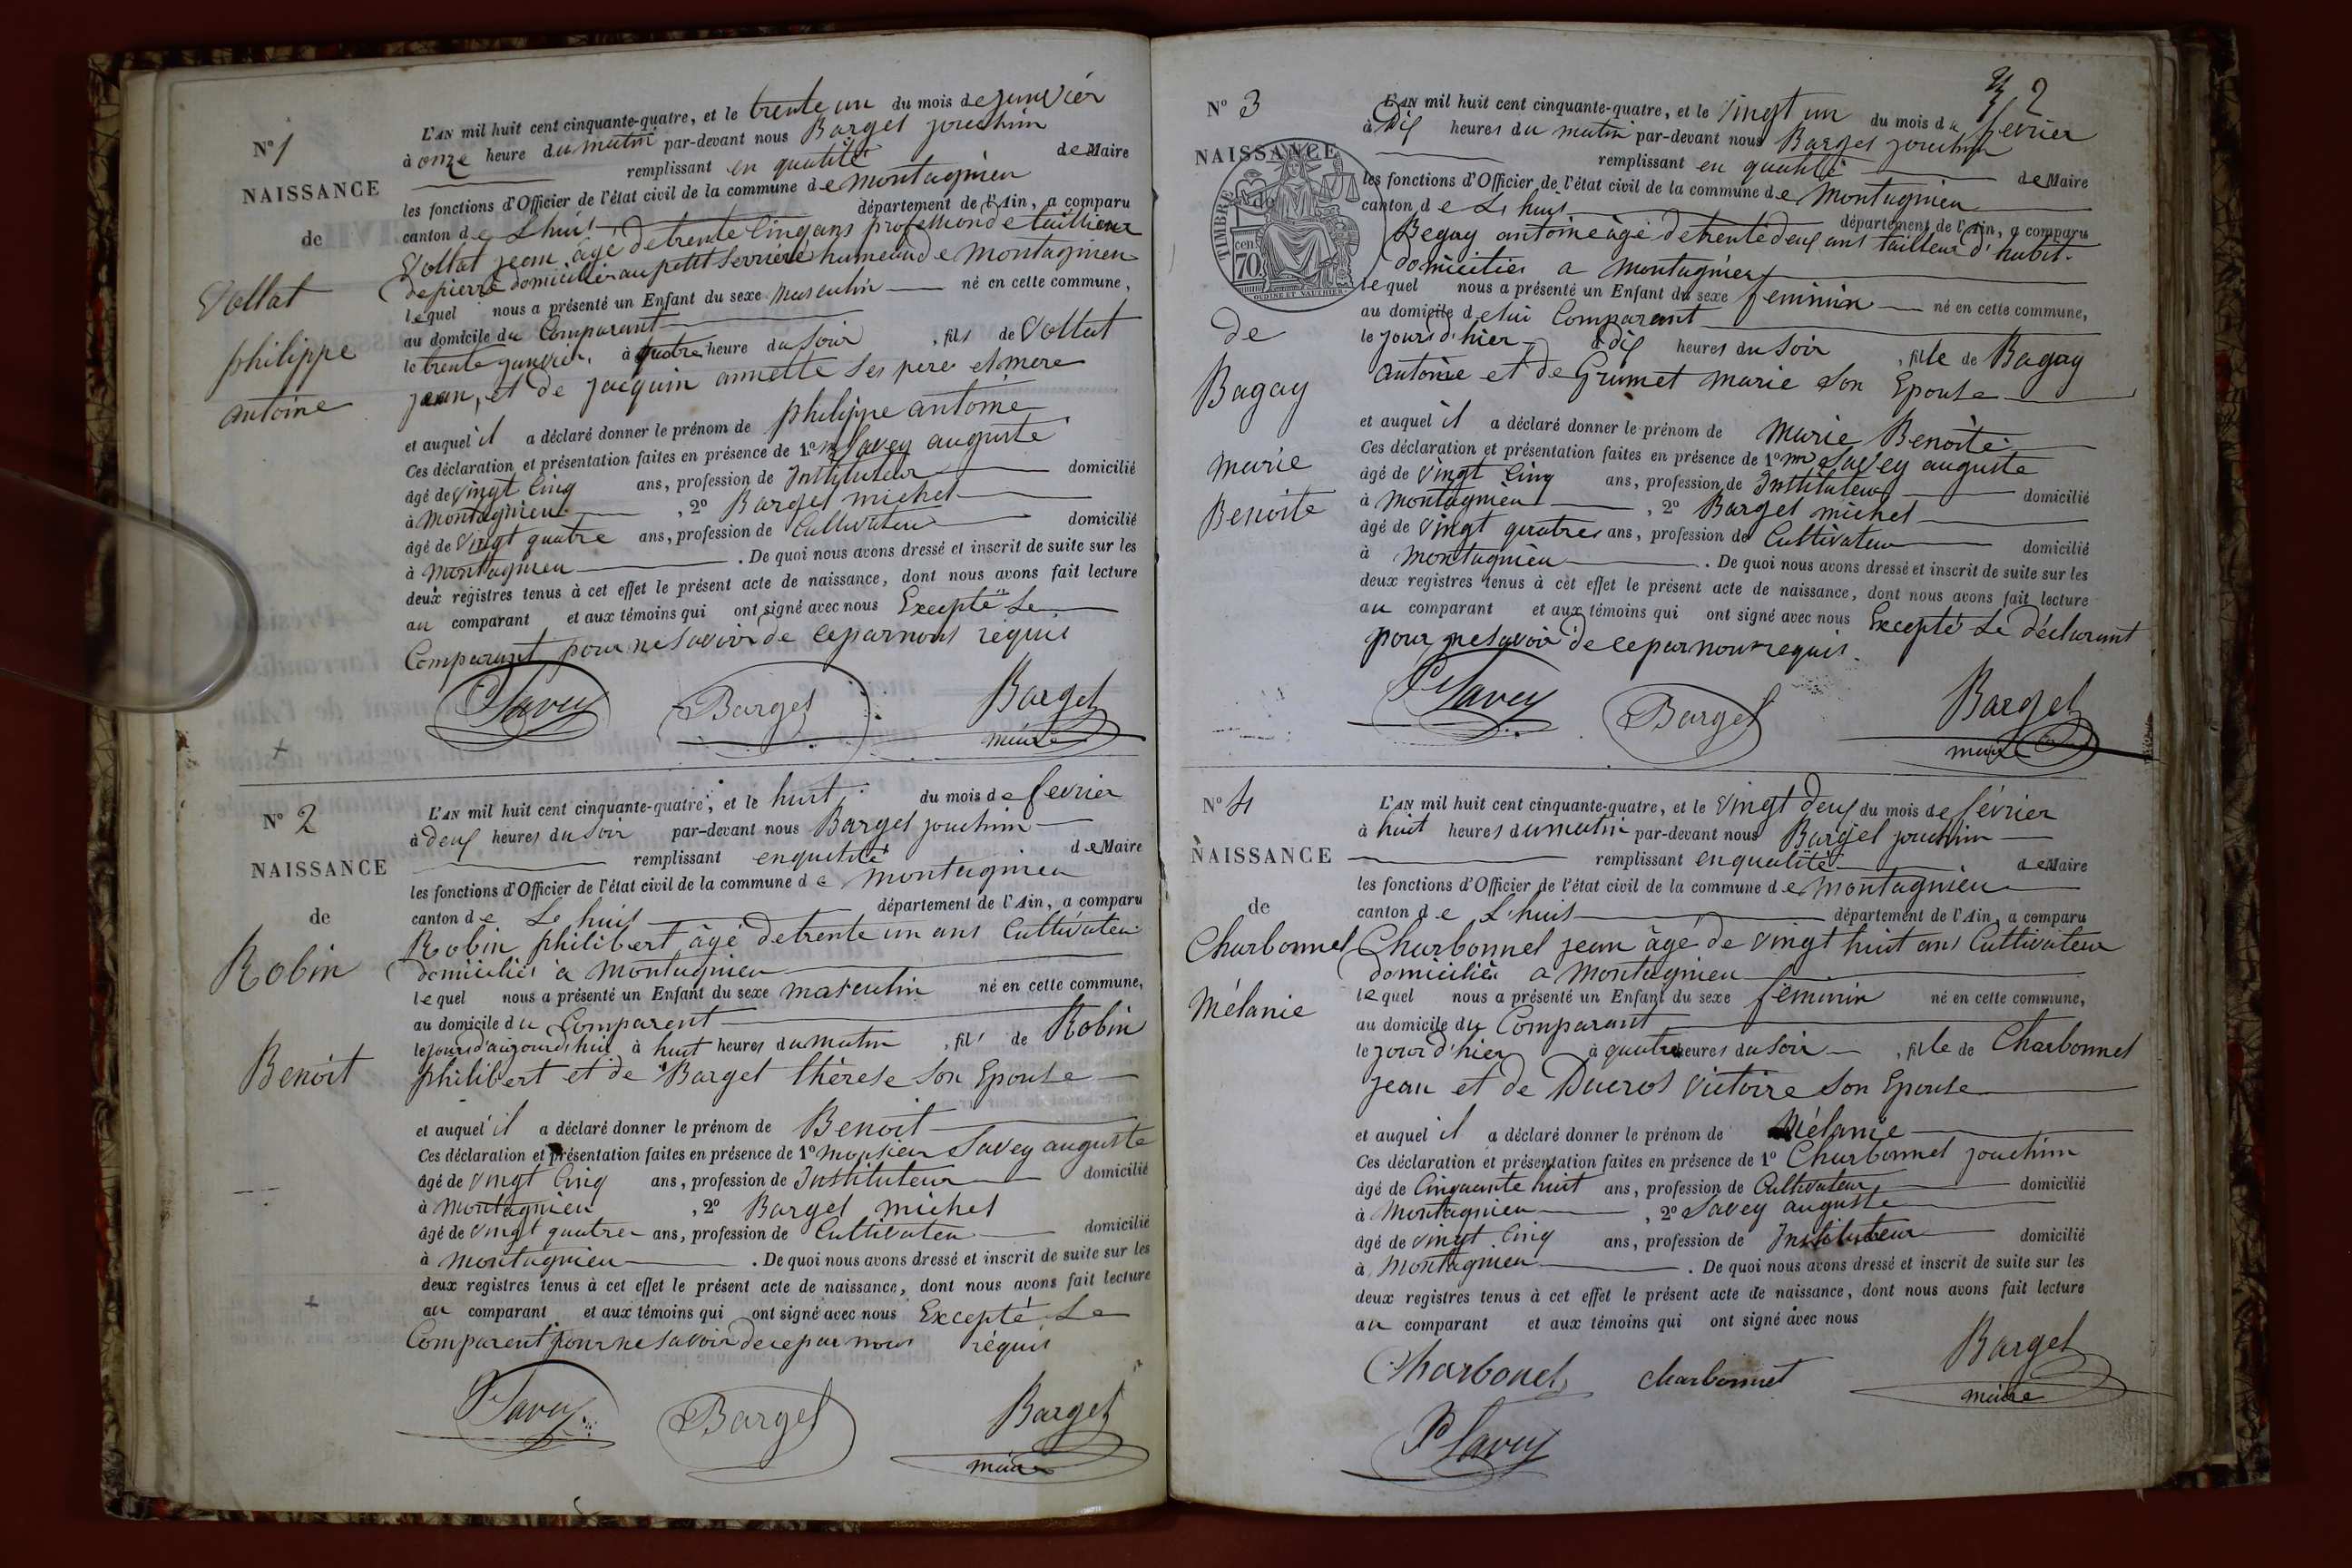 N° 1
NAISSANCE
de
Vollat
philippe
antoine
L'AN mil huit cent cinquante-quatre, et le trente un du mois de janvier
à onze heure du matin par-devant nous Barget joachim
remplissant en qualité de Maire
les fonctions d'Officier de l'état civil de la commune de montagnieu
canton de Lhuis département de l'Ain, a comparu
Vollat jean âgé de trente cinq ans profession de taillieur
de pierre domicilié au petit serriere humeau de montagnieu
lequel nous a présenté un Enfant du sexe masculin né en cette commune,
au domicile du Comparant
le trente janvier, à quatre heure du soir, fils de Vollat
jean, et de jacquin annette ses pere et mere
et auquel il a déclaré donner le prénom de philippe antoine
Ces déclaration et présentation faites en présence de 1° mr Savey auguste
âgé de vingt cinq ans, profession de Instituteur domicilié
à montagnieu, 2° Barget michel
âgé de vingt quatre ans, profession de Cultivateur domicilié
à montagnieu. De quoi nous avons dressé et inscrit de suite sur les
deux registres tenus à cet effet le présent acte de naissance, dont nous avons fait lecture
au comparant et aux témoins qui ont signé avec nous Excepté Le
Comparant pour ne savoir de ce par nous requis
Savey Barget Barget
maire
N° 2
NAISSANCE
de
Robin
Benoit
L'AN mil huit cent cinquante-quatre, et le huit du mois de fevrier
à deux heures du soir par-devant nous Barget joachim
remplissant en qualité de Maire
les fonctions d'Officier de l'état civil de la commune de montagnieu
canton de Lhuis département de l'Ain, a comparu
Robin philibert âgé de trente un ans Cultivateur
domicilié à montagnieu
lequel nous a présenté un Enfant du sexe masculin né en cette commune,
au domicile du Comparent
le jours d'aujourd'hui à huit heures du matin, fils de Robin
philibert et de Barget thérèse son Epouse
et auquel il a déclaré donner le prénom de Benoit
Ces déclaration et présentation faites en présence de 1° monsieur Savey auguste
âgé de vingt cinq ans, profession de Instituteur domicilié
à montagnieu, 2° Barget michel
âgé de vingt quatre ans, profession de Cultivateur domicilié
à montagnieu. De quoi nous avons dressé et inscrit de suite sur les
deux registres tenus à cet effet le présent acte de naissance, dont nous avons fait lecture
au comparant et aux témoins qui ont signé avec nous Excepté Le
Comparent pour ne savoir de ce par nous réquis
Savey Barget Barget
maire
2
N° 3
NAISSANCE
TIMBRE
cen 70
OUDINE ET VAUTHIER
de
Bagay
marie
Benoite
L'AN mil huit cent cinquante-quatre, et le vingt un du mois de fevrier
à dix heures du matin par-devant nous Barget joachim
remplissant en qualité de Maire
les fonctions d'Officier de l'état civil de la commune de Montagnieu
canton de Lhuis département de l'Ain, a comparu
Begay antoine âgé de trente deux ans tailleur d'habit
domicilié a montagnieu
lequel nous a présenté un Enfant du sexe feminin né en cette commune,
au domicile de lui Comparant
le jour d'hier à dix heures du soir, fille de Bagay
antoine et de Grumet marie son Epouse
et auquel il a déclaré donner le prénom de Marie Benoite
Ces déclaration et présentation faites en présence de 1° mr Savey auguste
âgé de vingt cinq ans, profession de Instituteur domicilié
à montagnieu, 2° Barget michel
âgé de vingt quatre ans, profession de Cultivateur domicilié
à montagnieu. De quoi nous avons dressé et inscrit de suite sur les
deux registres tenus à cet effet le présent acte de naissance, dont nous avons fait lecture
au comparant et aux témoins qui ont signé avec nous Excepté Le déclarant
pour ne savoir de ce par nous requis.
Savey Barget Barget
maire
N° 4
NAISSANCE
de
Charbonnel
Mélanie
L'AN mil huit cent cinquante-quatre, et le vingt deux du mois de février
à huit heures du matin par-devant nous Barget joachim
remplissant en qualité de Maire
les fonctions d'Officier de l'état civil de la commune de montagnieu
canton de Lhuis département de l'Ain, a comparu
Charbonnel jean âgé de vingt huit ans Cultivateur
domicilié a montagnieu
lequel nous a présenté un Enfant du sexe féminin né en cette commune,
au domicile du Comparant
le jour d'hier à quatre heures du soir, fille de Charbonnel
jean et de Ducros victoire son Epouse
et auquel il a déclaré donner le prénom de Mélanie
Ces déclaration et présentation faites en présence de 1° Charbonnel joachim
âgé de Cinquante huit ans, profession de Cultivateur domicilié
à montagnieu, 2° Savey auguste
âgé de vingt cinq ans, profession de Instituteur domicilié
à montagnieu. De quoi nous avons dressé et inscrit de suite sur les
deux registres tenus à cet effet le présent acte de naissance, dont nous avons fait lecture
au comparant et aux témoins qui ont signé avec nous
Charbonel charbonnel Barget
maire
Savey